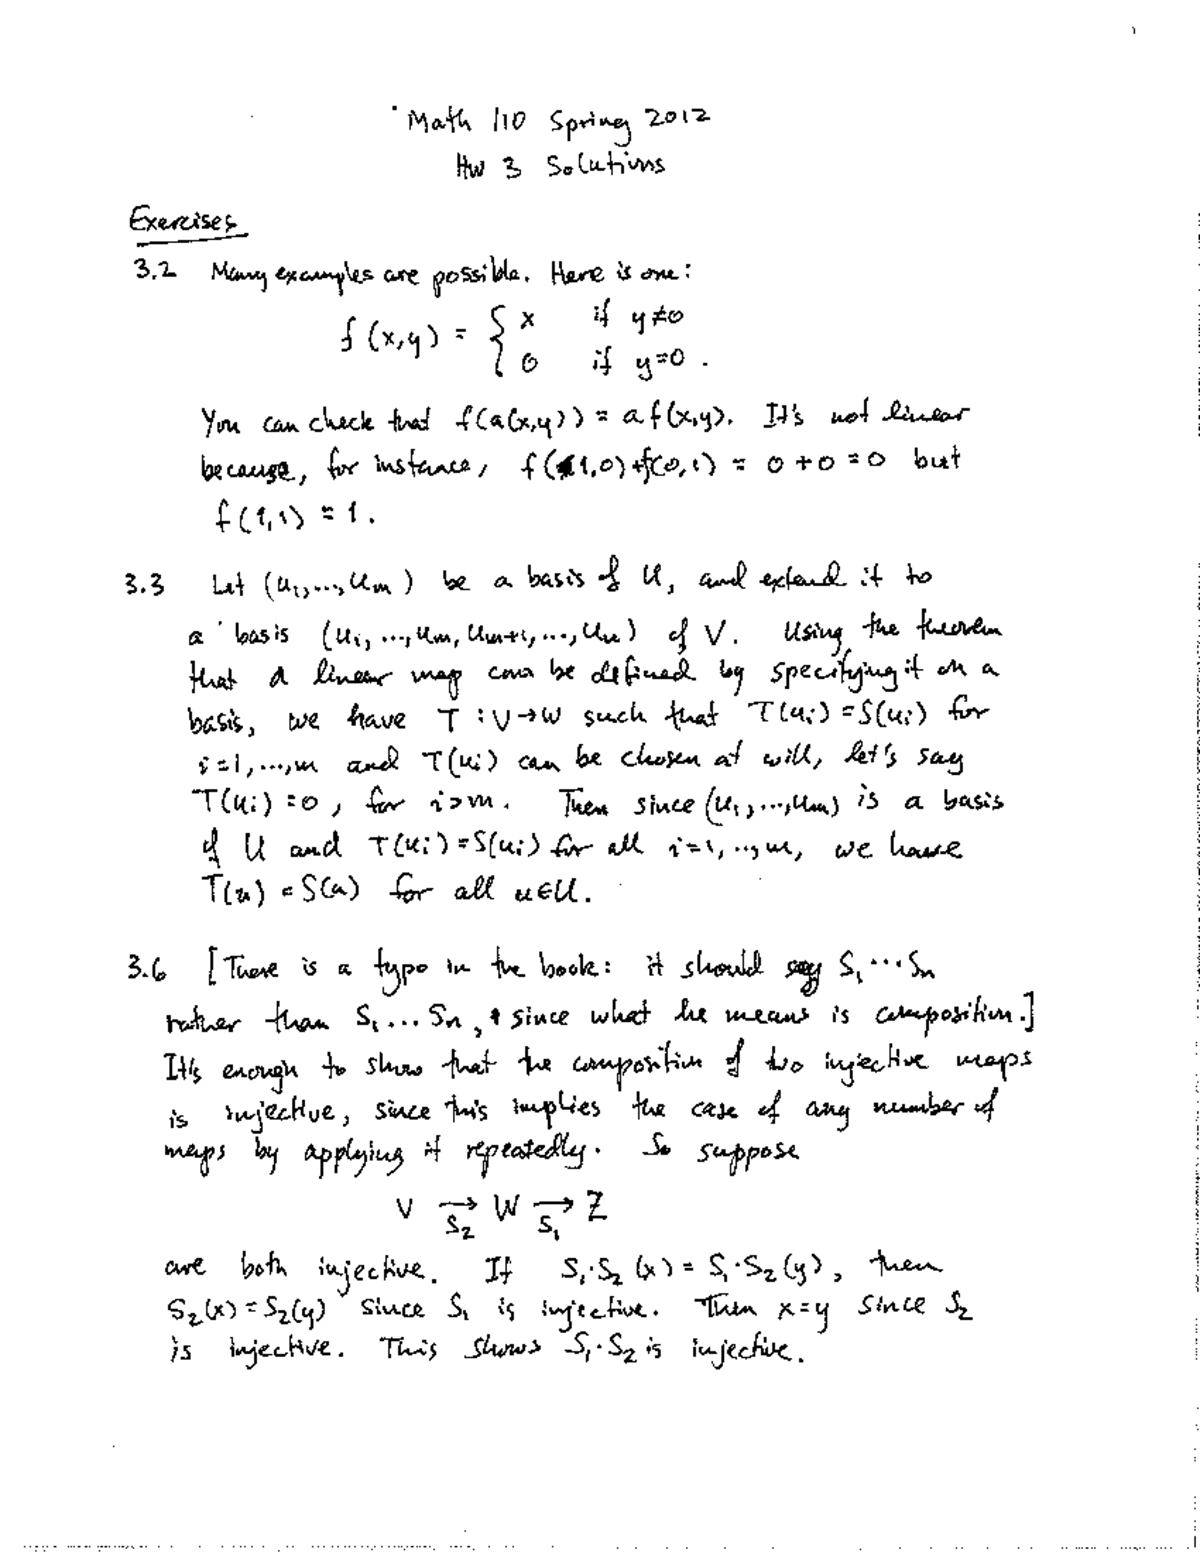 Math 110 Spring 2012
HW 3 Solutions
Exercises
3.2 Many examples are possible. Here is one:
f(x,y) = { x if y≠0
0 if y=0.
You can check that f(a(x,y)) = a f(x,y). It's not linear
because, for instance, f(1,0)+f(0,1) = 0+0=0 but
f(1,1) = 1.
3.3 Let (u1,...,um) be a basis of U, and extend it to
a basis (u1,...,um,um+1,...,un) of V. Using the theorem
that a linear map can be defined by specifying it on a
basis, we have T:V→W such that T(ui)=S(ui) for
i=1,...,m and T(ui) can be chosen at will, let's say
T(ui)=0, for i>m. Then since (u1,...,um) is a basis
of U and T(ui)=S(ui) for all i=1,...,m, we have
T(u)=S(u) for all u∈U.
3.6 [There is a typo in the book: it should say S1⋯Sn
rather than S1...Sn, since what he means is composition.]
It's enough to show that the composition of two injective maps
is injective, since this implies the case of any number of
maps by applying it repeatedly. So suppose
V →S2 W →S1 Z
are both injective. If S1·S2(x) = S1·S2(y), then
S2(x)=S2(y) since S1 is injective. Then x=y since S2
is injective. This shows S1·S2 is injective.